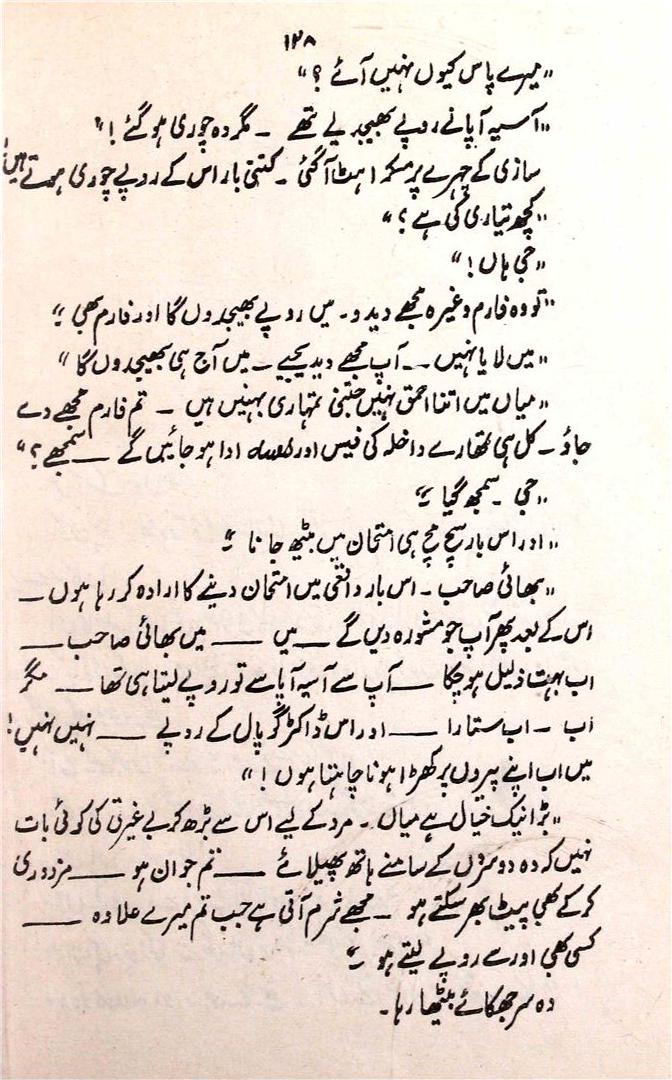 ۱۲۸
"میرے پاس کیوں نہیں آئے ؟"
"آسیہ آپا نے روپے بھیجدیے تھے ۔ مگر وہ چوری ہو گئے !"
سازی کے چہرے پر مسکراہٹ آگئی ۔ کتنی بار اس کے روپے چوری ہوتے ہیں!
"کچھ تیاری کی ہے ؟"
"جی ہاں !"
"تو وہ فارم وغیرہ مجھے دیدو ۔ میں روپے بھیجدوں گا اور فارم بھی ۔"
"میں لایا نہیں ــ آپ مجھے دیدیجیے ــ میں آج ہی بھیجدوں گا"
"میاں میں اتنا احمق نہیں جتنی تمہاری بہنیں ہیں ــ تم فارم مجھے دے
جاؤ ۔ کل ہی تمھارے داخلہ کی فیس اور dues ادا ہو جائیں گے ــــ سمجھے ؟"
"جی ۔ سمجھ گیا ۔"
"اور اس بار سچ مچ ہی امتحان میں بیٹھ جانا ۔"
"بھائی صاحب ۔ اس بار واقعی میں امتحان دینے کا ارادہ کر رہا ہوں ــ
اس کے بعد پھر آپ جو مشورہ دیں گے ــــ میں ــــ میں بھائی صاحب ــــ
اب بہت ذلیل ہو چکا ــــ آپ سے آسیہ آپا سے تو روپے لیتا ہی تھا ــــ مگر
اب ــ اب ستارا ــــ اور اس ڈاکٹر گرپال کے روپے ــــ نہیں نہیں !
میں اب اپنے پیروں پر کھڑا ہونا چاہتا ہوں !"
"بڑا نیک خیال ہے میاں ۔ مرد کے لیے اس سے بڑھ کر بے غیرتی کی کوئی بات
نہیں کہ وہ دوسروں کے سامنے ہاتھ پھیلائے ــــ تم جوان ہو ــــ مزدوری
کر کے بھی پیٹ بھر سکتے ہو ــ مجھے شرم آتی ہے جب تم میرے علاوہ ــــ
کسی بھی اور سے روپے لیتے ہو ۔"
وہ سر جھکائے بیٹھا رہا ۔